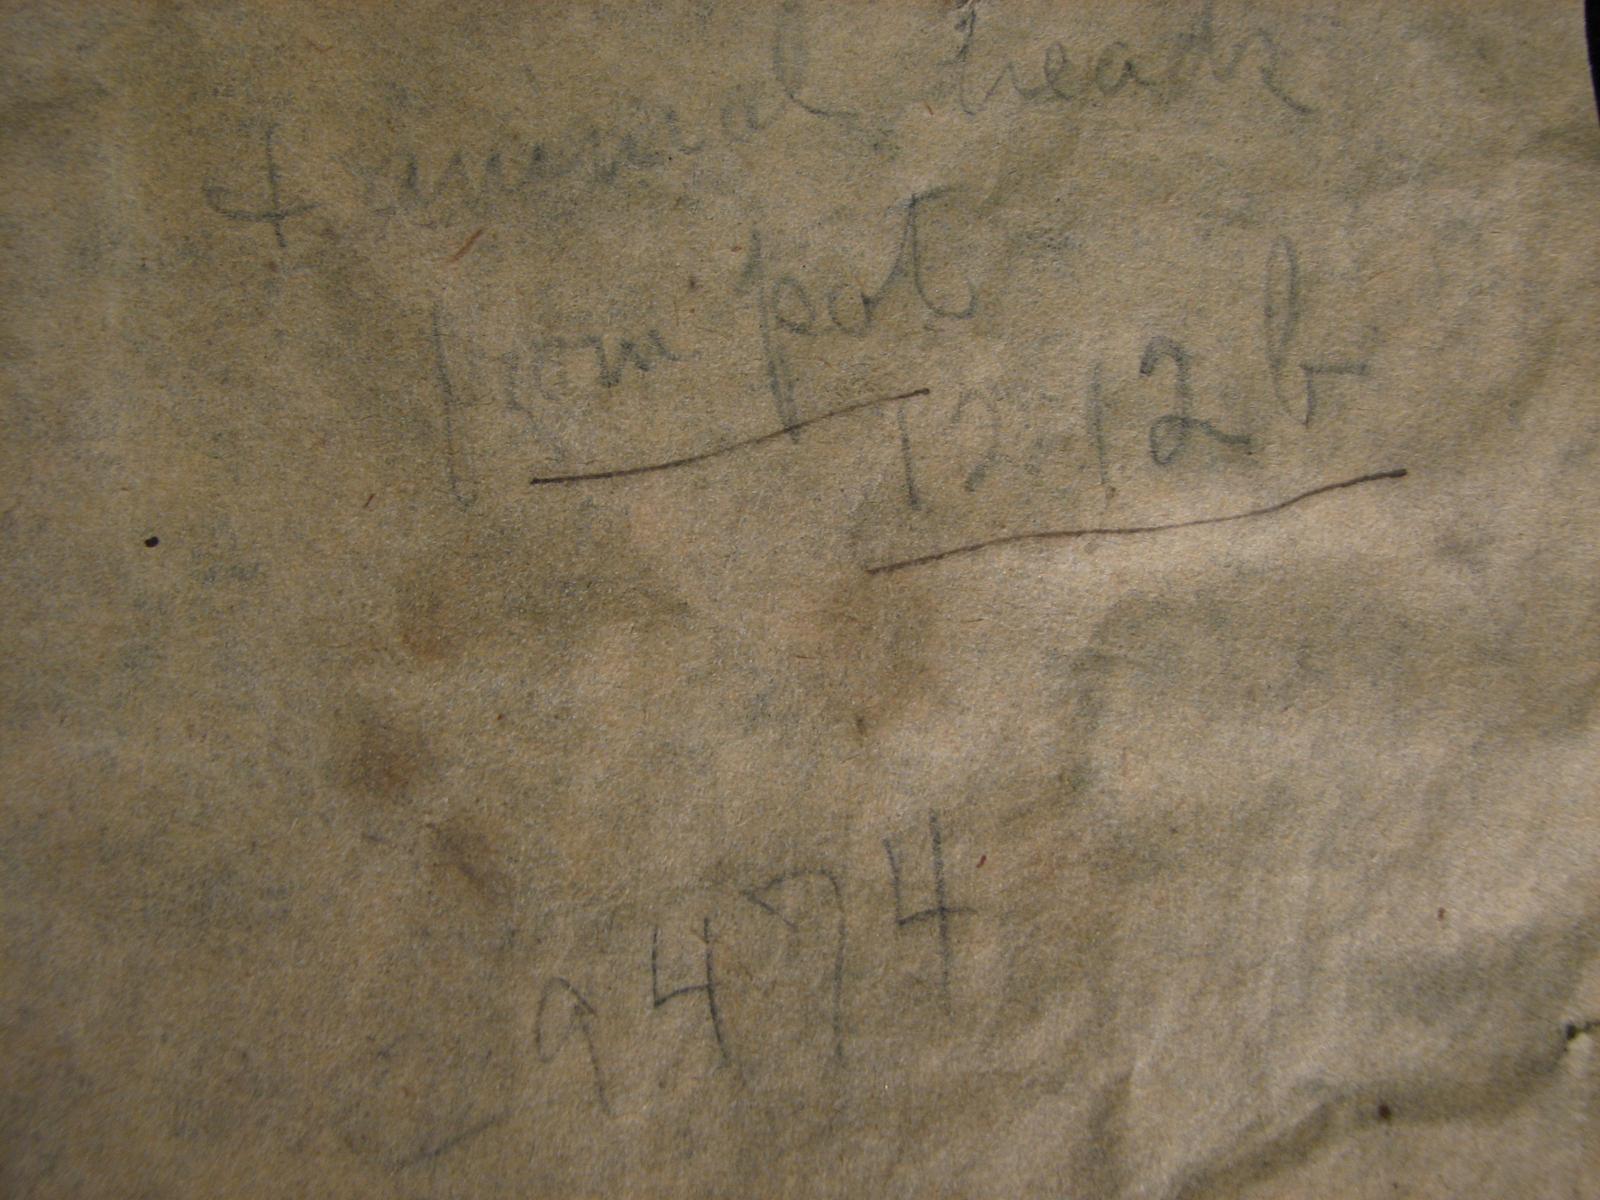 4 animal heads
from pot
12.12b
9474